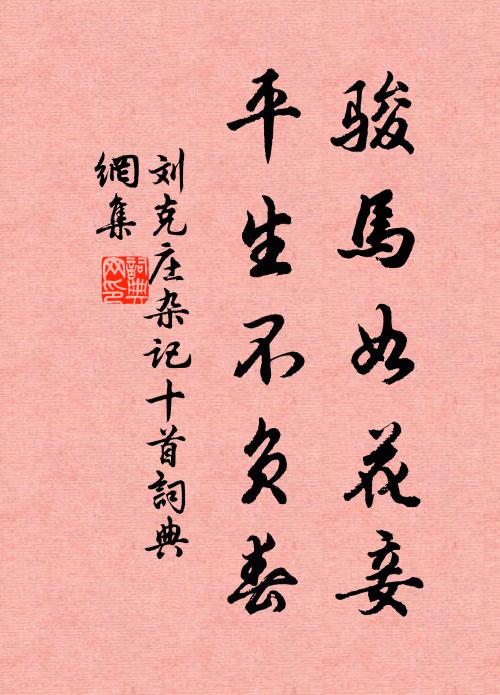 骏馬如花妾
平生不负春
刘克庄杂记十首詞典
網集
詞典网印